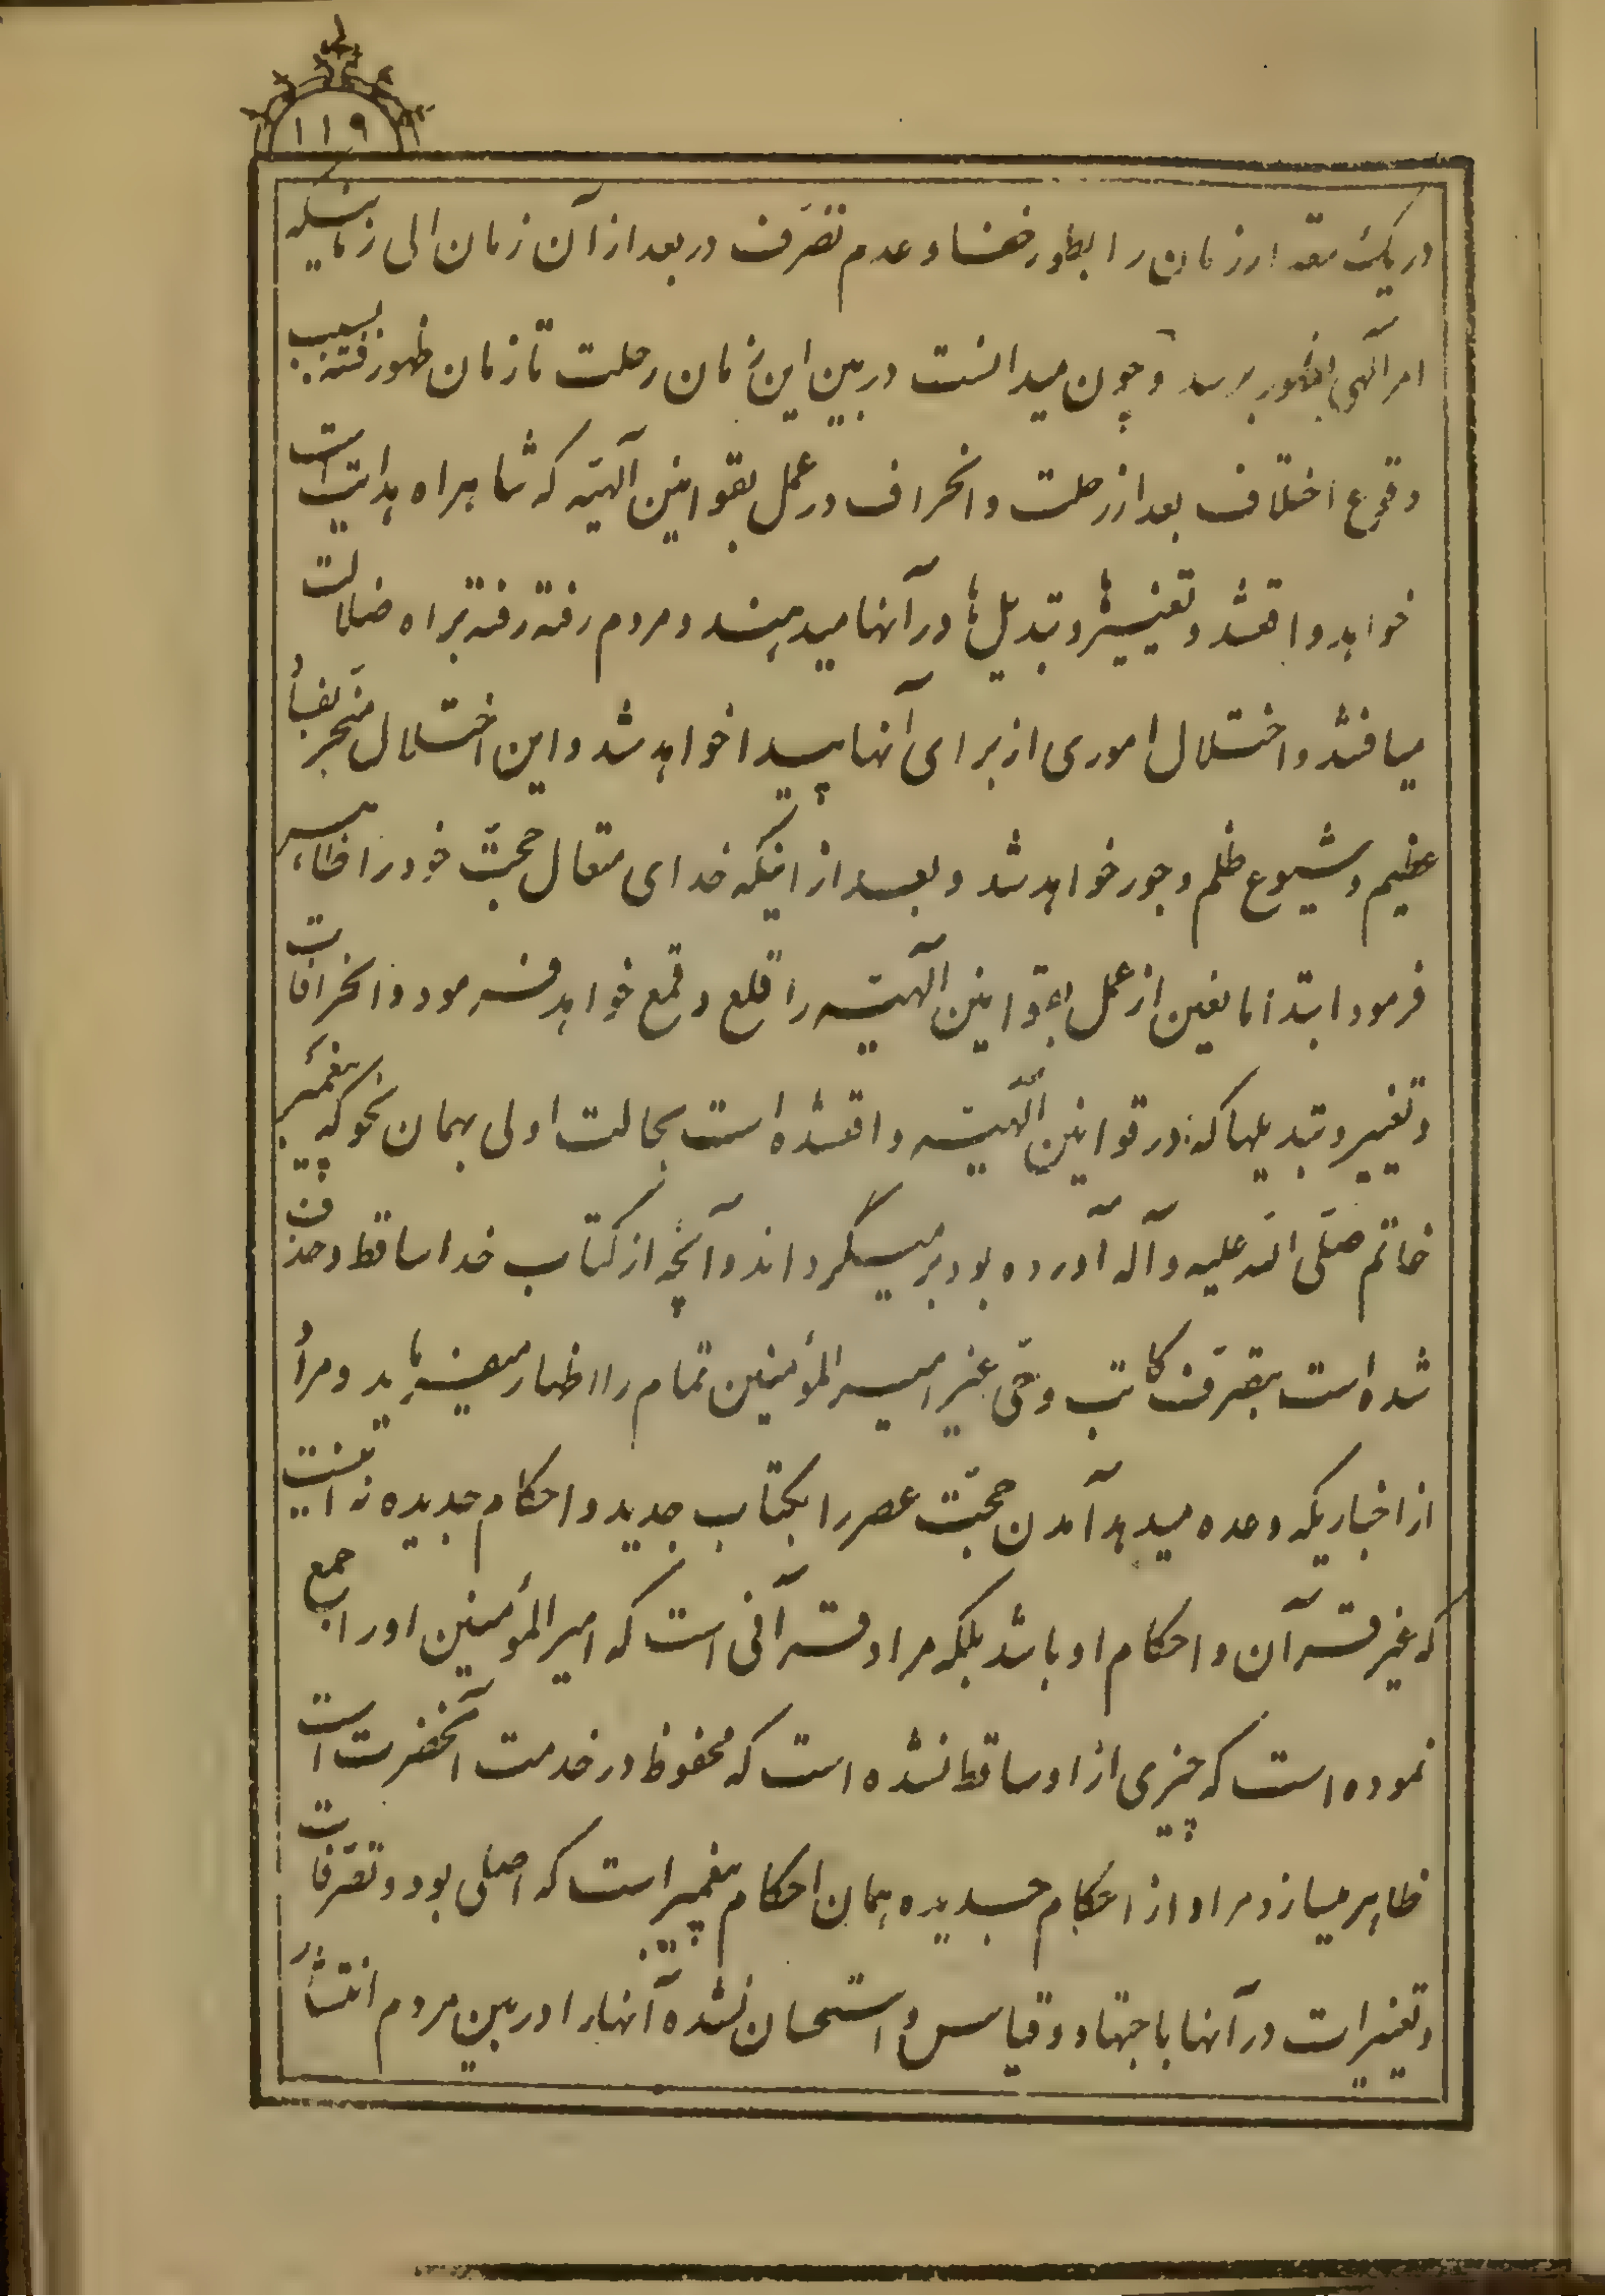 ۱۱۹
در یک مقدار زمان را بطور خفا و عدم تصرّف در بعد از آن زمان الی زمانیکه
امر آلهی بظهور برسد و چون میدانست در بین این زمان رحلت تا زمان ظهور فتنه بسبب
وقوع اختلاف بعد از رحلت و انحراف در عمل بقوانین آلهیّه که شاهراه هدایت است
خواهد واقعشد و تغییرها و تبدیل‌ها در آنها میدهند و مردم رفته رفته براه ضلالت
میافتند و اختلال اموری از برای آنها پیدا خواهد شد و این اختلال منجرّ بفساد
عظیم و شیوع ظلم و جور خواهد شد و بعد از اینکه خدای متعال حجّت خود را ظاهر
فرمود ابتدا مانعین از عمل بقوانین آلهیّه را قلع و قمع خواهد فرمود و انحرافات
و تغییر و تبدیلها که در قوانین آلهیّه واقعشده است بحالت اولی بهمان نحو که پیغمبر
خاتم صلّی الله علیه و آله آورده بود بر میگرداند و آنچه از کتاب خدا ساقط و حذف
شده است بتصرّف کاتب وحی غیر امیرالمؤمنین تمام را اظهار میفرماید و مراد
از اخباریکه وعده میدهد آمدن حجّت عصر را بکتاب جدید و احکام جدیده نه اینست
که غیر قرآن و احکام او باشد بلکه مراد قرآنی است که امیر المؤمنین او را جمع
نموده است که چیزی از او ساقط نشده است که محفوظ در خدمت آنحضرت است
ظاهر میسازد و مراد از احکام جدیده همان احکام پیغمبر است که اصلی بود و تصرّفات
و تغییرات در آنها باجتهاد و قیاس و استحسان نشده آنها را در بین مردم انتشار